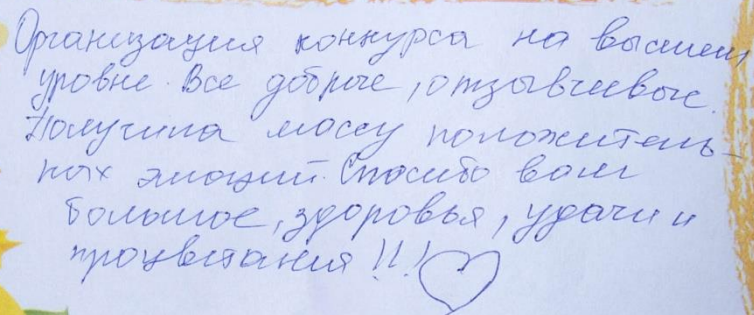 Организация конкурса на высшем
уровне. Все добрые, отзывчивые.
Получила массу положитель-
ных эмоций. Спасибо вам
большое, здоровья, удачи и
процветания!!!